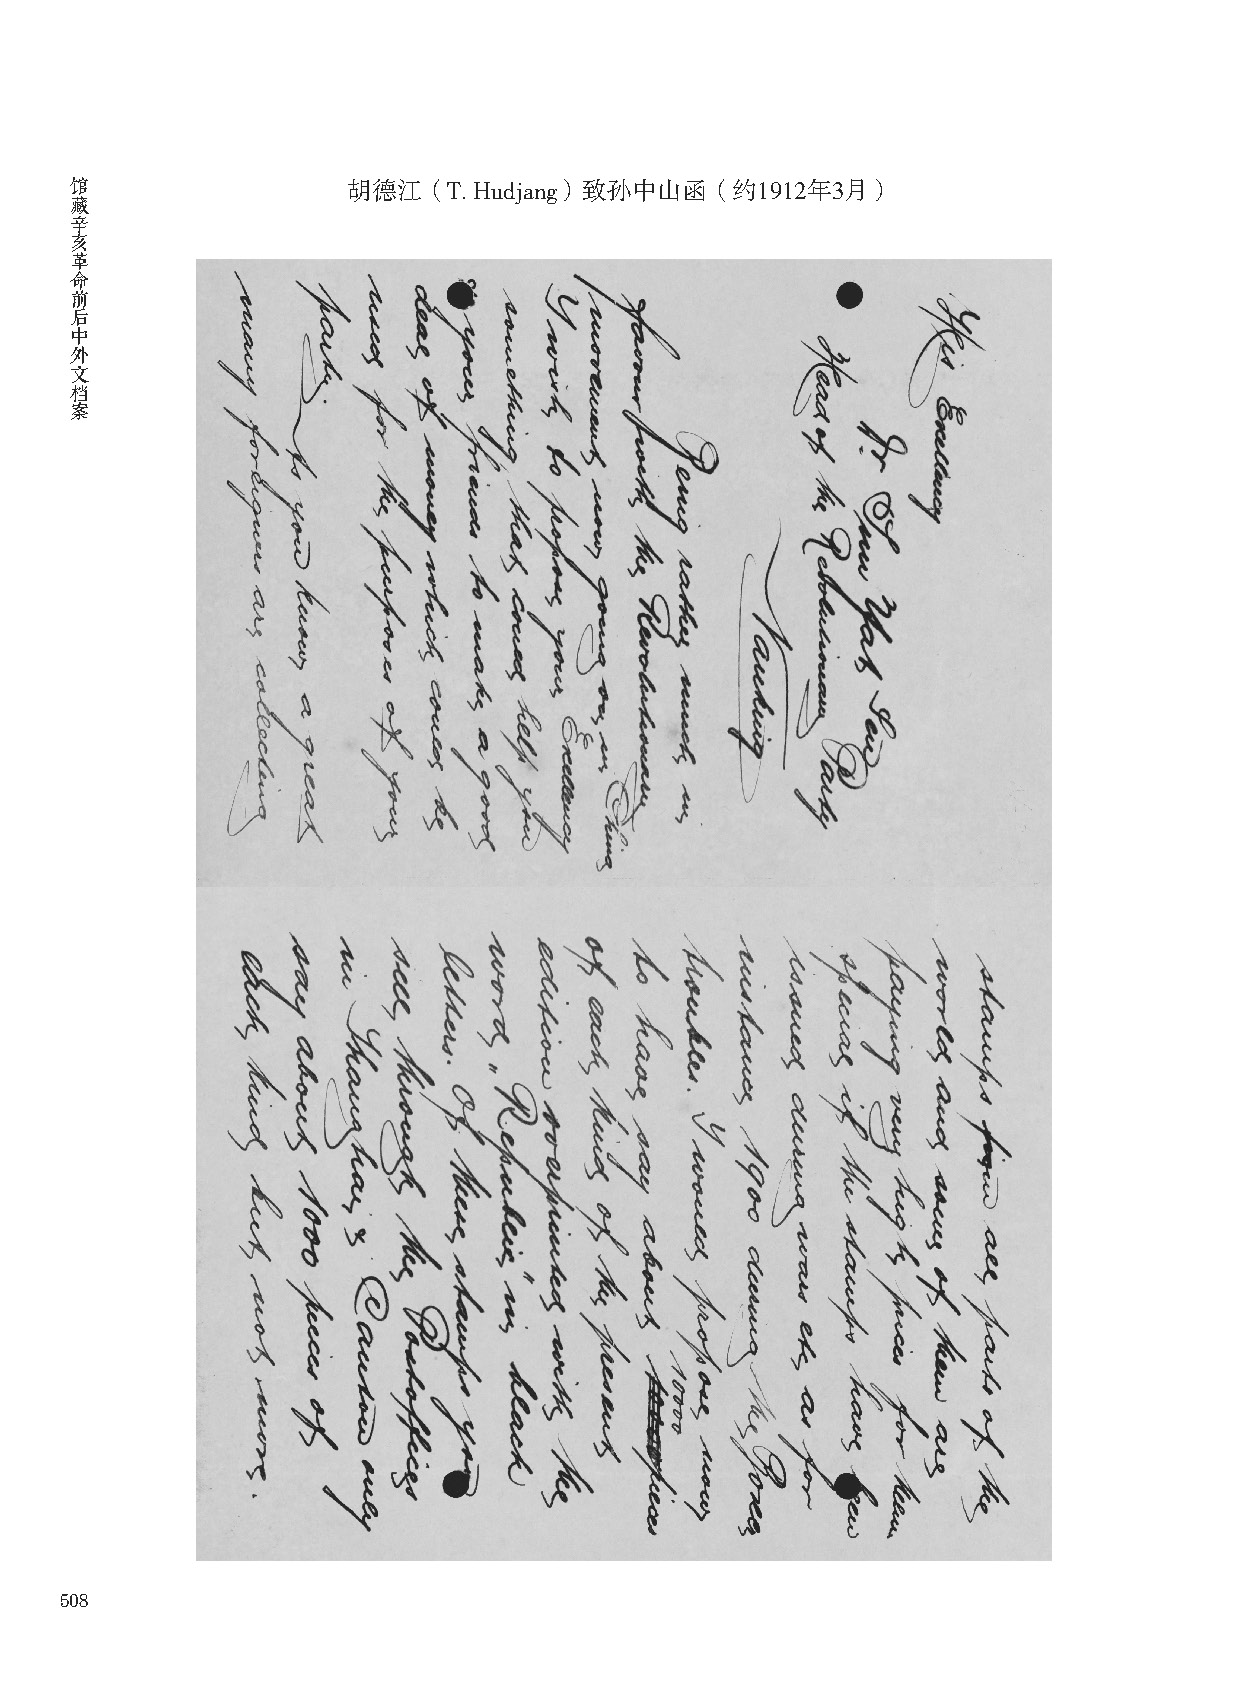 馆藏辛亥革命前后中外文档案
胡德江（T. Hudjang）致孙中山函（约1912年3月）
His Excellency
Dr Sun Yat Sen
Head of the Revolutionary Party
Nanking
Being rather much in
favour with the Revolutionary
movement now going on in China
I wish to propose your Excellency
something that could help you
& your friends to make a good
deal of money which could be
used for the purposes of your
party.
As you know a great
many foreigners are collecting
stamps from all parts of the
world and some of them are
paying very high prices for them
special if the stamps have been
issued during wars etc as for
instance 1900 during the Boxer
troubles. I would propose now
to have say about 10000 pieces
of each kind of the present
edition overprinted with the
word "Republic" in black
letters. Of these stamps you
sell through the Postoffices
in Shanghai & Canton only
say about 1000 pieces of
each kind but not more.
508